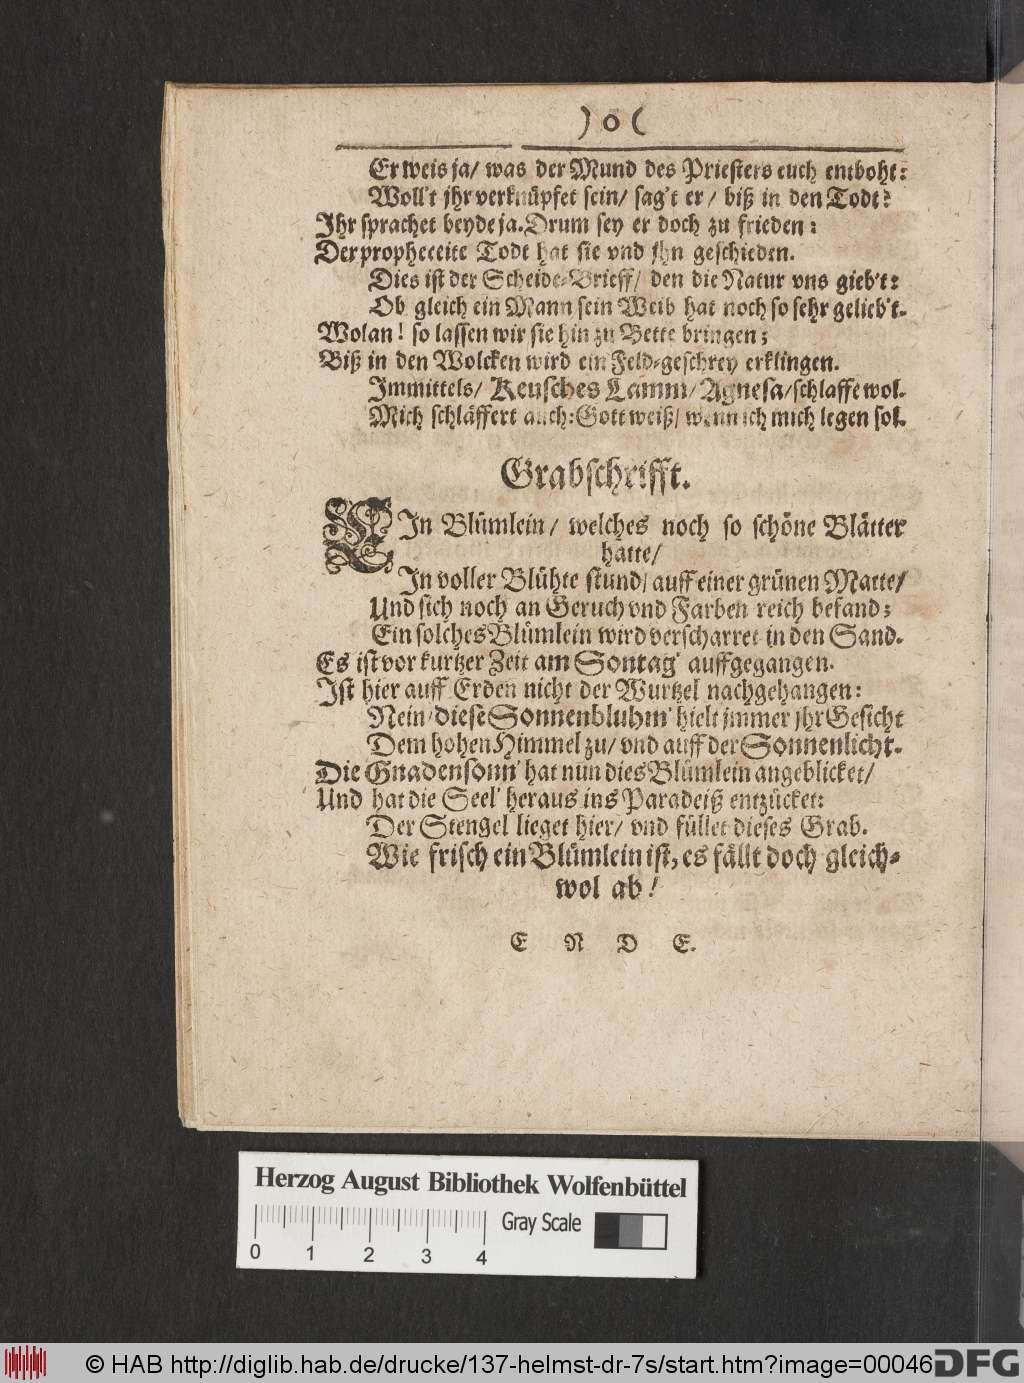 ) o (
Er weis ja/ was der Mund des Priesters euch entboht:
Woll't jhr verknüpfet sein/ sag't er/ biß in den Todt?
Jhr sprachet beyde ja. Drum sey er doch zu frieden:
Der propheceite Todt hat sie vnd jhn geschieden.
Dies ist der Scheide-Brieff/ den die Natur vns gieb't:
Ob gleich ein Mann sein Weib hat noch so sehr gelieb't.
Wolan! so lassen wir sie hin zu Bette bringen;
Biß in den Wolcken wird ein Feld-geschrey erklingen.
Jmmittels/ Keusches Lamm/ Agnesa/ schlaffe wol.
Mich schläffert auch: Gott weiß/ wenn ich mich legen sol.
Grabschrifft.
EIn Blümlein/ welches noch so schöne Blätter
hatte/
Jn voller Blühte stund/ auff einer grünen Matte/
Und sich noch an Geruch vnd Farben reich befand;
Ein solches Blümlein wird verscharret in den Sand.
Es ist vor kurtzer Zeit am Sontag' auffgegangen.
Jst hier auff Erden nicht der Wurtzel nachgehangen:
Nein/ diese Sonnenbluhm' hielt jmmer jhr Gesicht
Dem hohen Himmel zu/ vnd auff der Sonnenlicht.
Die Gnadensonn' hat nun dies Blümlein angeblicket/
Und hat die Seel' heraus ins Paradeiß entzücket:
Der Stengel lieget hier/ vnd füllet dieses Grab.
Wie frisch ein Blümlein ist, es fällt doch gleich-
wol ab!
E N D E.
Herzog August Bibliothek Wolfenbüttel
Gray Scale
0 1 2 3 4
© HAB http://diglib.hab.de/drucke/137-helmst-dr-7s/start.htm?image=00046
DFG